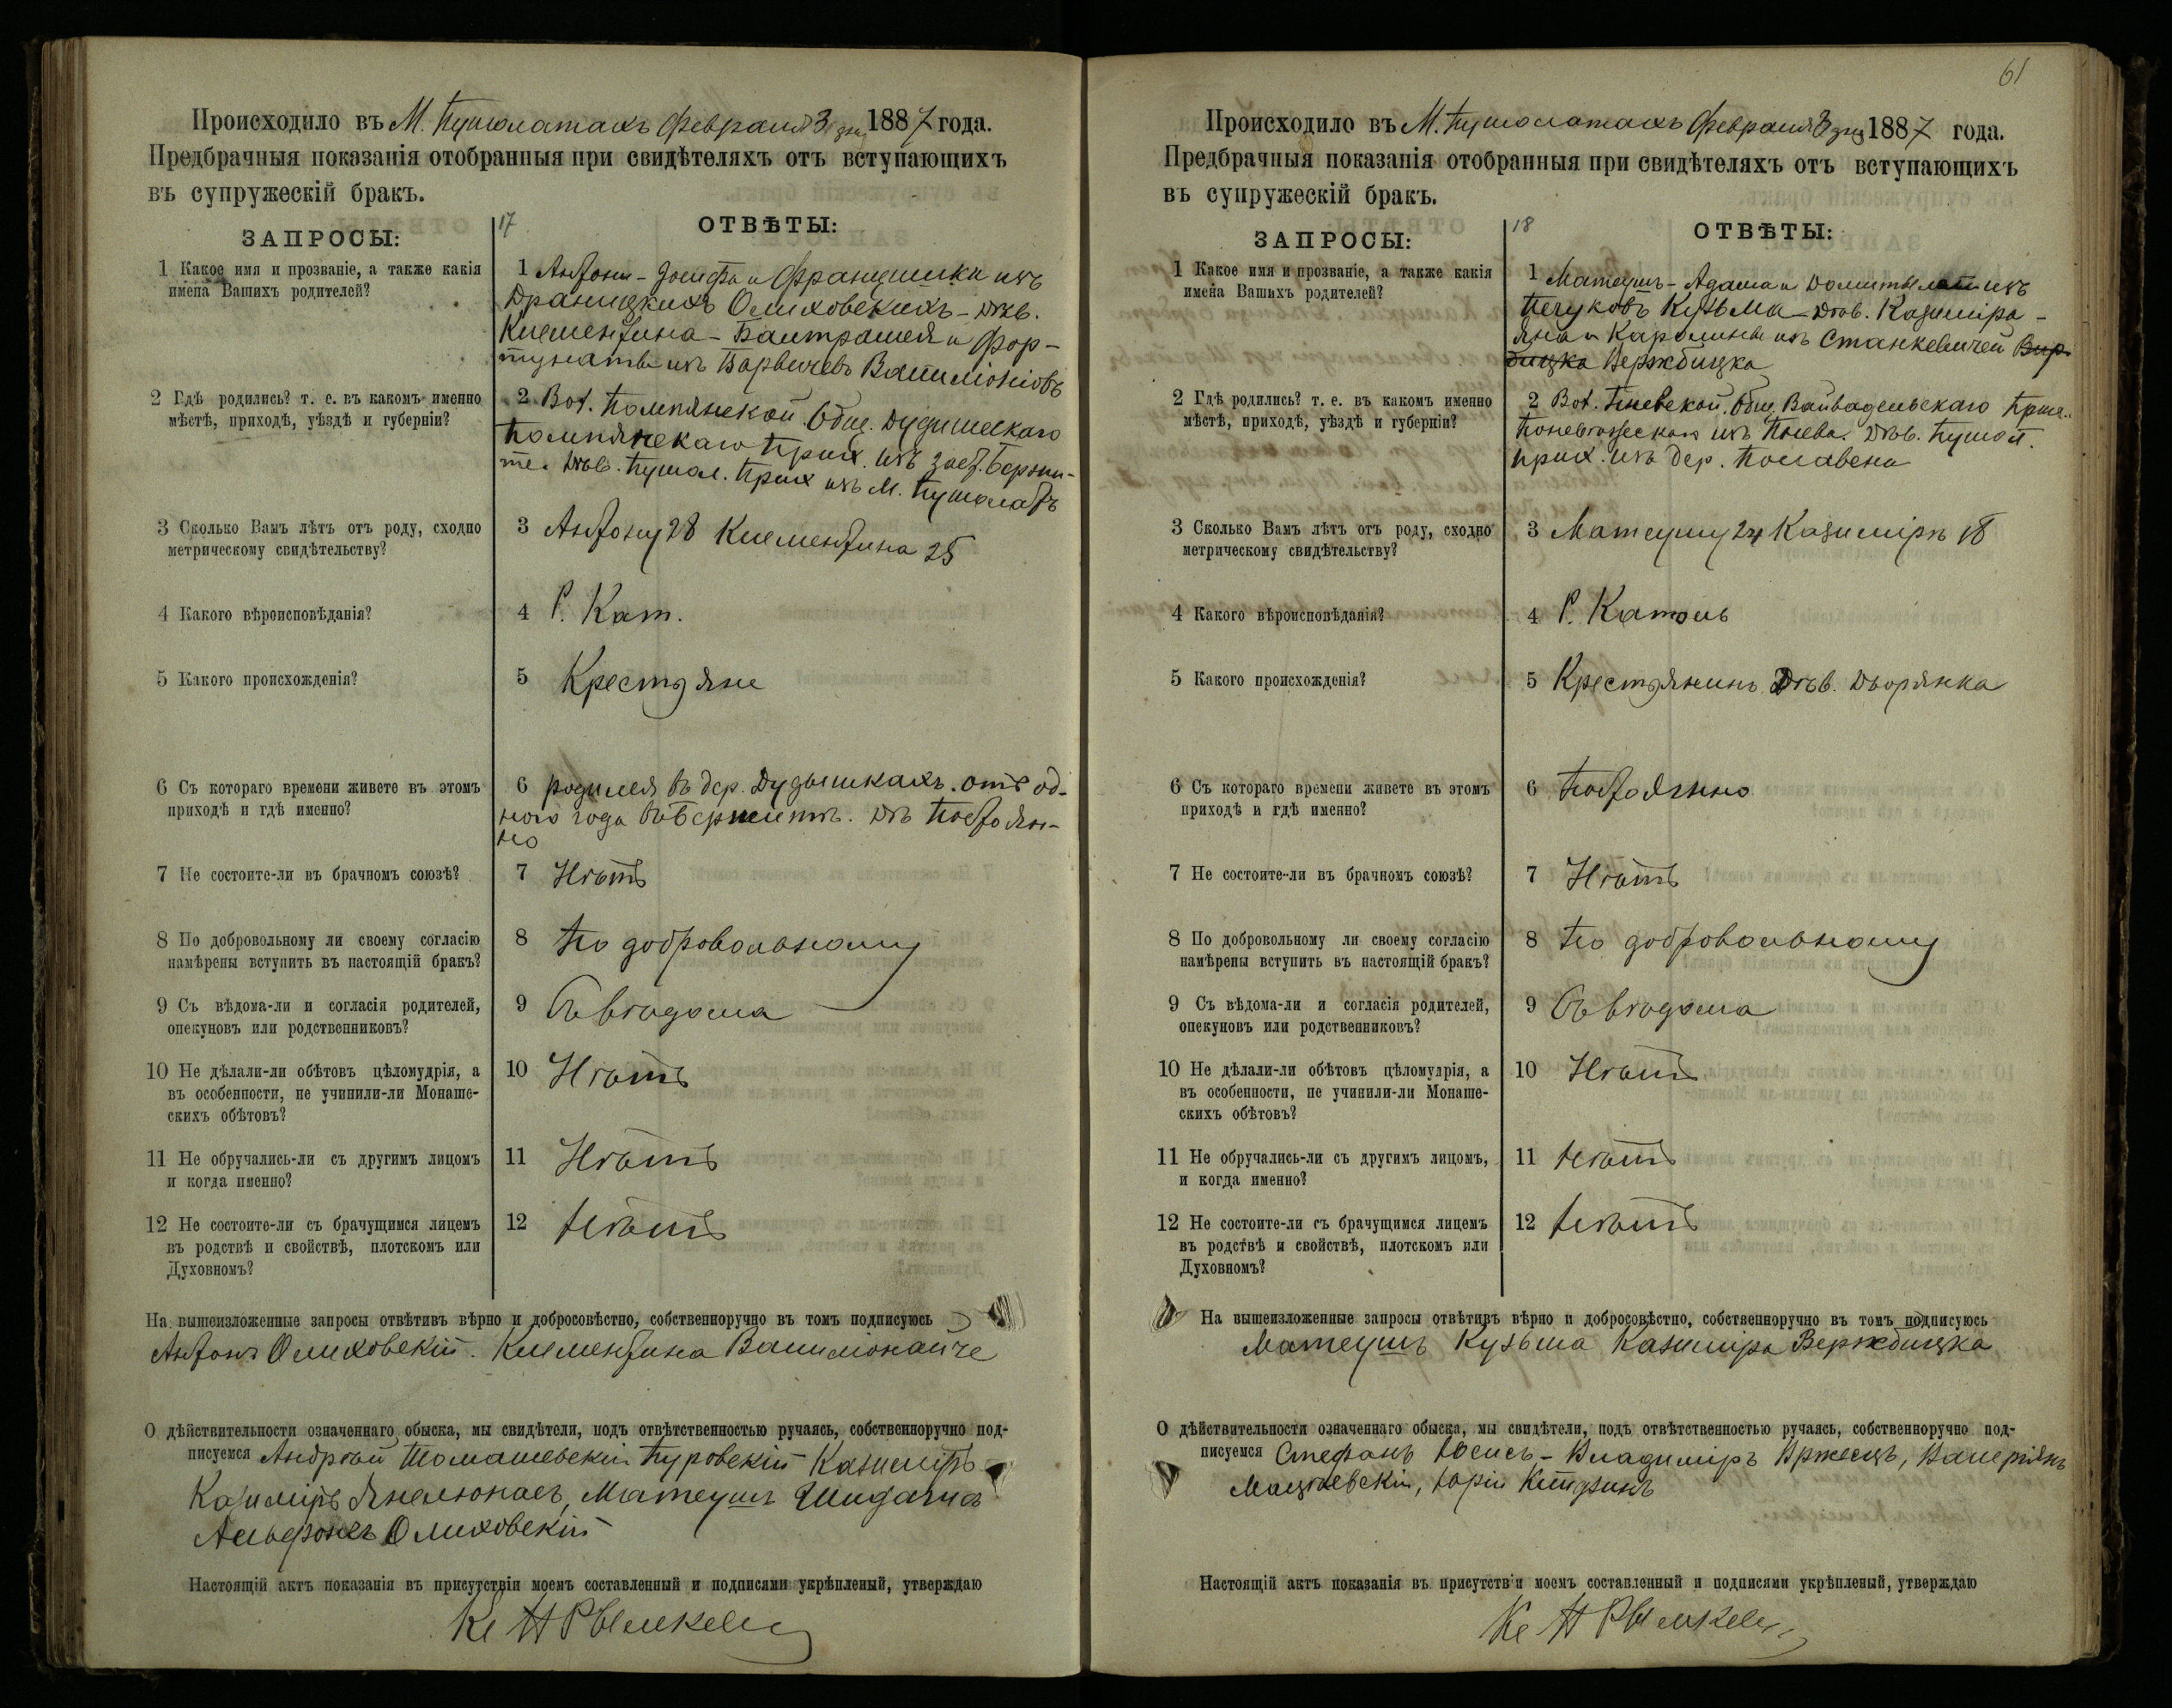 Происходило въ М. Пушолатахъ Февраля 3 дня 1887 года.
Предбрачныя показанія отобранныя при свидѣтеляхъ отъ вступающихъ
въ супружескій бракъ.
17
ЗАПРОСЫ:
ОТВѢТЫ:
1 Какое имя и прозваніе, а также какія
имена Вашихъ родителей?
1 Антоны - Іосифа и Францишки изъ
Драницкихъ Олиховскихъ - Дѣв.
Клементина - Балтромея и Фор-
тунаты изъ
2 Гдѣ родились? т. е. въ какомъ именно
мѣстѣ, приходѣ, уѣздѣ и губерніи?
2 Вол. Помпянской Общ. Дудишскаго
Помпянскаго Прих. изъ заст.
Дѣв. Пушол. Прих изъ М. Пушолатъ
3 Сколько Вамъ лѣтъ отъ роду, сходно
метрическому свидѣтельству?
3 Антону 28 Клементина 25
4 Какого вѣроисповѣданія?
4 Р. Кат.
5 Какого происхожденія?
5 Крестьяне
6 Съ котораго времени живете въ этомъ
приходѣ и гдѣ именно?
6 родился въ дер. Дудышкахъ. отъ од-
ного года въ Дѣ Постоян-
но
7 Не состоите-ли въ брачномъ союзѣ?
7 Нѣтъ
8 По добровольному ли своему согласію
намѣрены вступить въ настоящій бракъ?
8 По добровольному
9 Съ вѣдома-ли и согласія родителей,
опекуновъ или родственниковъ?
9 Съ вѣдома
10 Не дѣлали-ли обѣтовъ цѣломудрія, а
въ особенности, не учинили-ли Монаше-
скихъ обѣтовъ?
10 Нѣтъ
11 Не обручались-ли съ другимъ лицомъ
и когда именно?
11 Нѣтъ
12 Не состоите-ли съ брачущимся лицемъ
въ родствѣ и свойствѣ, плотскомъ или
Духовномъ?
12 Нѣтъ
На вышеизложенные запросы отвѣтивъ вѣрно и добросовѣстно, собственноручно въ томъ подписуюсь
Антонъ Олиховскій. Клементина
О дѣйствительности означеннаго обыска, мы свидѣтели, подъ отвѣтственностью ручаясь, собственноручно под-
писуемся Андрей Томашевскій Пуровскій Казиміръ
Казиміръ Янелюнасъ, Матеушъ
Альфонсъ Олиховскій
Настоящій актъ показанія въ присутствіи моемъ составленный и подписями укрѣпленый, утверждаю
61
Происходило въ М. Пушолатахъ Февраля 3 дня 1887 года.
Предбрачныя показанія отобранныя при свидѣтеляхъ отъ вступающихъ
въ супружескій бракъ.
18
ЗАПРОСЫ:
ОТВѢТЫ:
1 Какое имя и прозваніе, а также какія
имена Вашихъ родителей?
1 Матеушъ - Адама и изъ
Кузьма - Дѣв. Казиміра -
Яна и Каролины изъ Станкевичей
Вержбицка
2 Гдѣ родились? т. е. въ какомъ именно
мѣстѣ, приходѣ, уѣздѣ и губерніи?
2 Вол. Общ. Вайвадельскаго Прих.
Поневѣжскаго изъ Дѣв. Пушол.
прих. изъ дер.
3 Сколько Вамъ лѣтъ отъ роду, сходно
метрическому свидѣтельству?
3 Матеушу 24 Казиміръ 18
4 Какого вѣроисповѣданія?
4 Р. Католь
5 Какого происхожденія?
5 Крестьянинъ Дѣв. Дворянка
6 Съ котораго времени живете въ этомъ
приходѣ и гдѣ именно?
6 Постоянно
7 Не состоите-ли въ брачномъ союзѣ?
7 Нѣтъ
8 По добровольному ли своему согласію
намѣрены вступить въ настоящій бракъ?
8 По добровольному
9 Съ вѣдома-ли и согласія родителей,
опекуновъ или родственниковъ?
9 Съ вѣдома
10 Не дѣлали-ли обѣтовъ цѣломудрія, а
въ особенности, не учинили-ли Монаше-
скихъ обѣтовъ?
10 Нѣтъ
11 Не обручались-ли съ другимъ лицомъ,
и когда именно?
11 Нѣтъ
12 Не состоите-ли съ брачущимся лицемъ
въ родствѣ и свойствѣ, плотскомъ или
Духовномъ?
12 Нѣтъ
На вышеизложенные запросы отвѣтивъ вѣрно и добросовѣстно, собственноручно въ томъ подписуюсь
Матеушъ Кузьма Казиміра Вержбицка
О дѣйствительности означеннаго обыска, мы свидѣтели, подъ отвѣтственностью ручаясь, собственноручно под-
писуемся Стефанъ - Владиміръ Валеріянъ
Юрій
Настоящій актъ показанія въ присутствіи моемъ составленный и подписями укрѣпленый, утверждаю